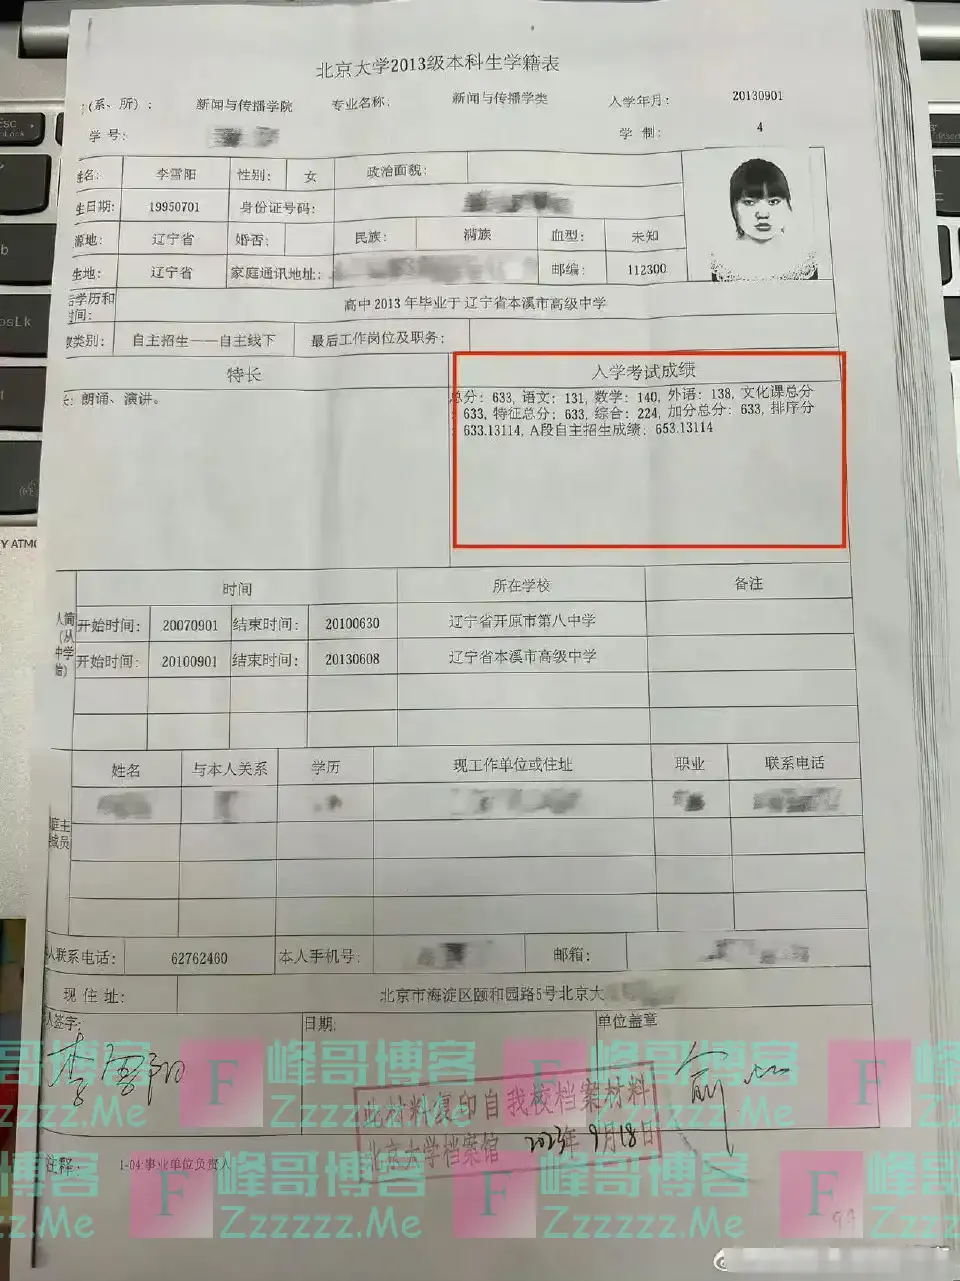 北京大学2013级本科生学籍表
(系、所): 新闻与传播学院 专业名称: 新闻与传播学类 入学年月: 20130901
学号: 学制: 4
姓名: 李雪阳 性别: 女 政治面貌:
生日期: 19950701 身份证号码:
源地: 辽宁省 婚否: 民族: 满族 血型: 未知
生地: 辽宁省 家庭通讯地址: 邮编: 112300
后学历和时间: 高中2013年毕业于辽宁省本溪市高级中学
类别: 自主招生——自主线下 最后工作岗位及职务:
特长 入学考试成绩
长: 朗诵、演讲。
总分: 633, 语文: 131, 数学: 140, 外语: 138, 文化课总分
: 633, 特征总分: 633, 综合: 224, 加分总分: 633, 排序分
: 633.13114, A段自主招生成绩: 653.13114
时间 所在学校 备注
人简(从中学始)
开始时间: 20070901 结束时间: 20100630 辽宁省开原市第八中学
开始时间: 20100901 结束时间: 20130608 辽宁省本溪市高级中学
姓名 与本人关系 学历 现工作单位或住址 职业 联系电话
庭主
成员
人联系电话: 62762460 本人手机号: 邮箱:
现住址: 北京市海淀区颐和园路5号北京大
人签字: 日期: 单位盖章
李雪阳
此材料复印自我校档案材料
北京大学档案馆 2023年9月18日
注释: 1-04:事业单位负责人
F 峰哥博客 Zzzzzz.Me
F 峰哥博客 Zzzzzz.Me